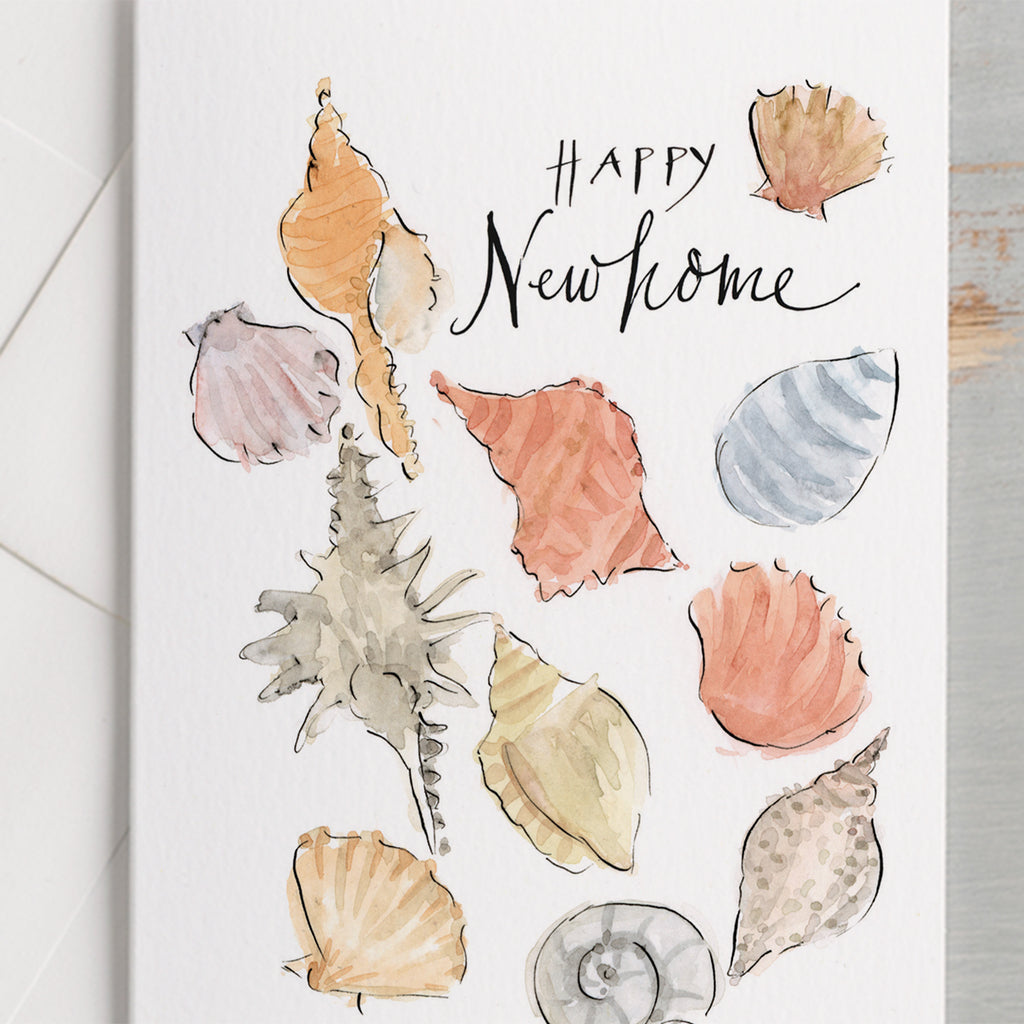 HAPPY
New home